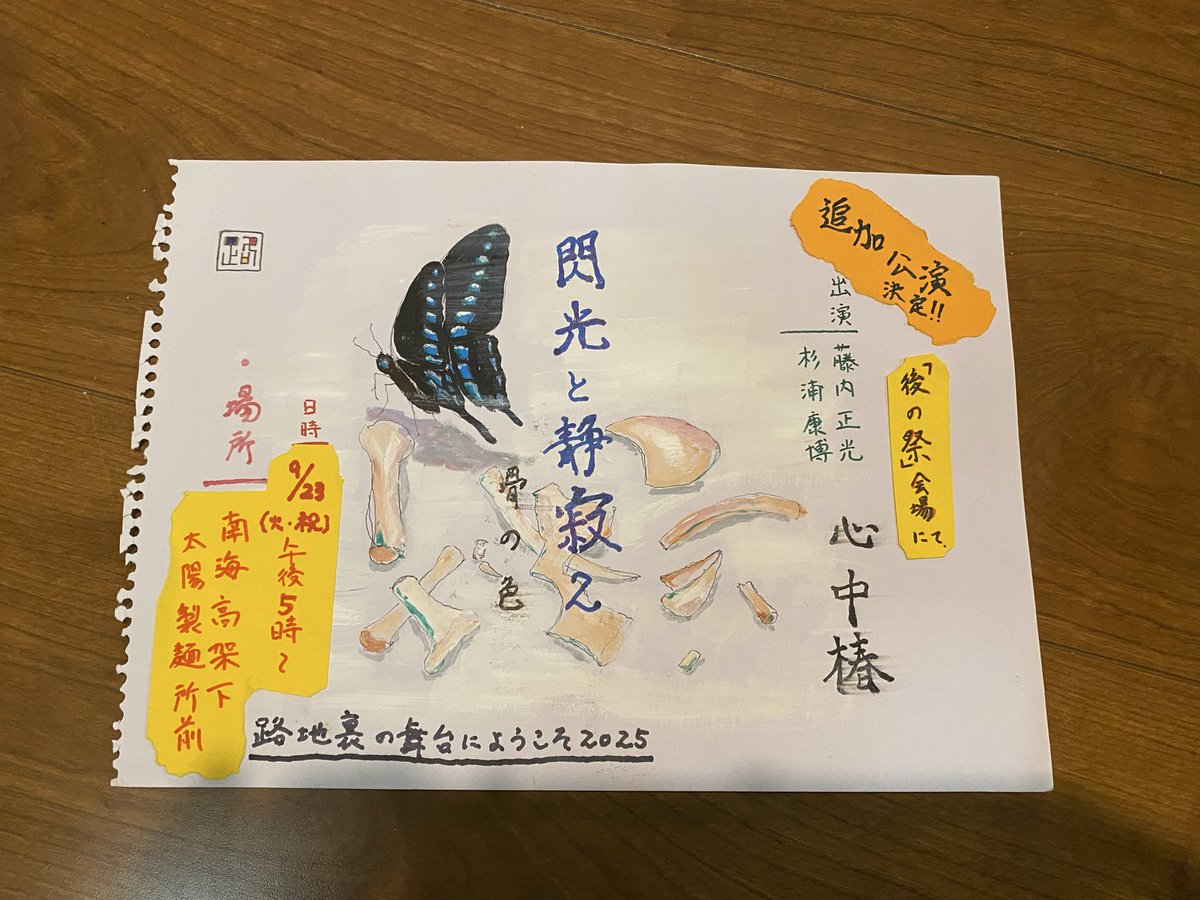 追加
公演
決定!!
「後の祭」会場にて、
出演
藤内正光
杉浦康博
心中椿
閃光と静寂へ
骨の色
日時
9/23
(火・祝)
午後5時〜
・場所
南海高架下
太陽製麺所前
路地裏の舞台にようこそ2025